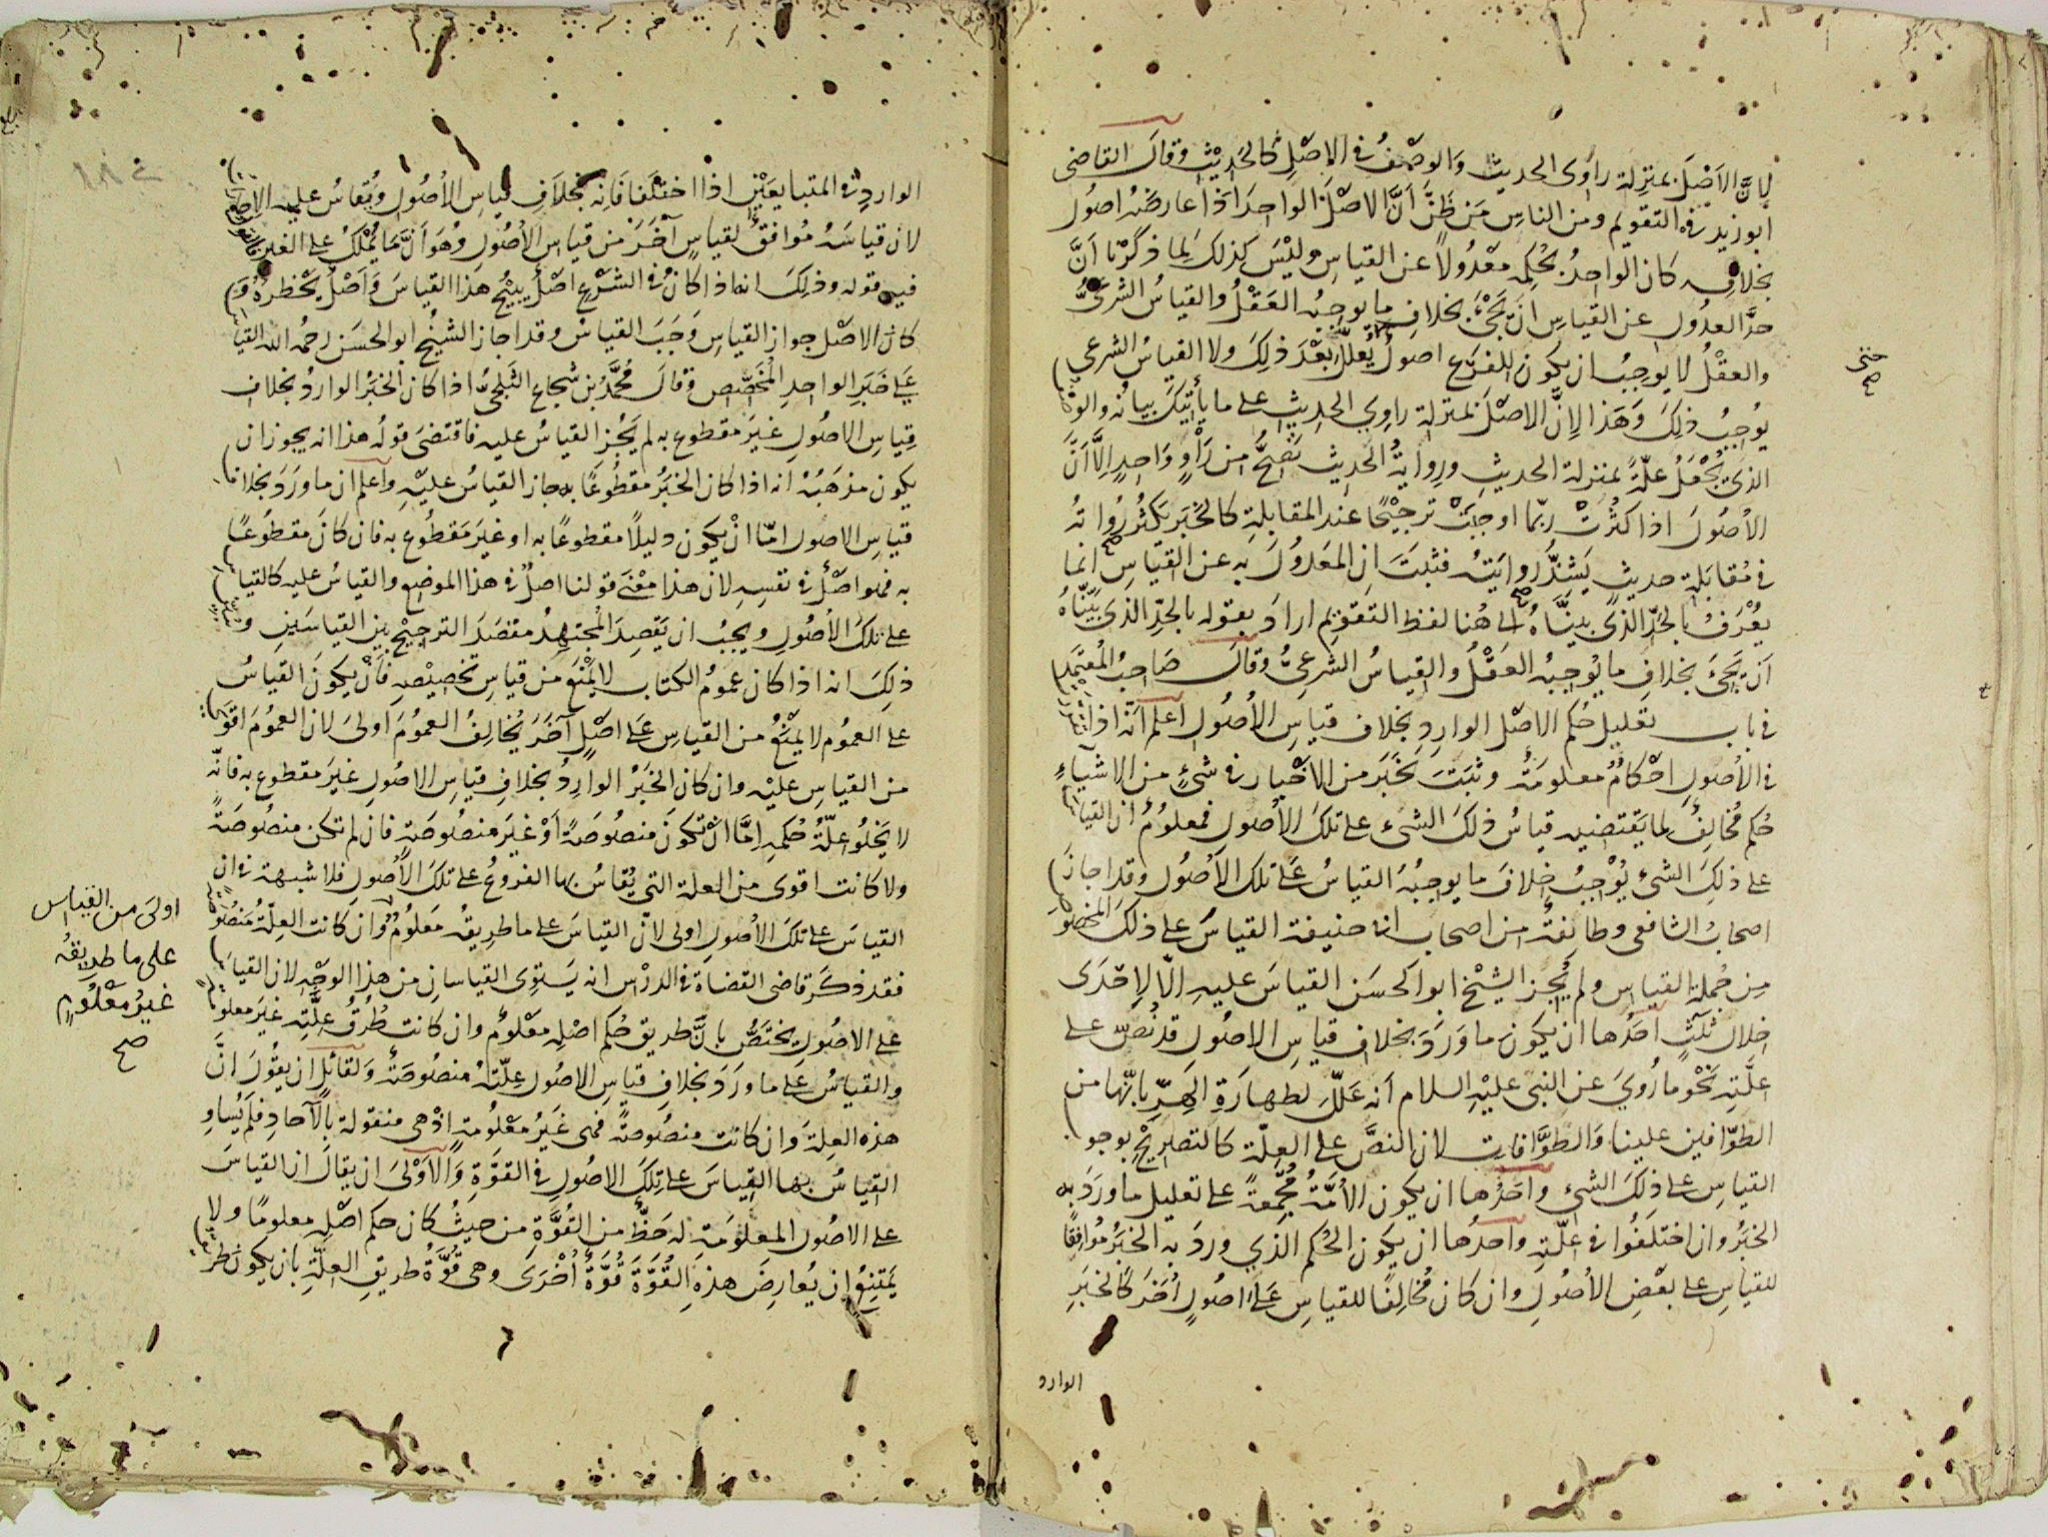 لِاَنَّ الاَصْلَ بمنزلة راوى الحديث وَالوصْفُ فى الاصْلِ كالحَدِيْثِ وقالَ القاضى
ابو زيد فى التقويم ومن الناسِ مَن ظَنَّ اَنَّ الاصْلَ الواحِدَ اذا عارضَه اصُول
بخلافِه كان الواحِدُ بحُكمِه معْدُولًا عن القياسِ وليْسَ كذلكَ لِما ذكَرْنا اَنَّ
حدَّ العدُول عن القياسِ انْ يَجْىَٔ بخلافِ ما يوجبُه العَقْلُ والقياسُ الشرعىُّ
والعقْلُ لا يوجِبُ ان يكون للفرْع اصولٌ حتى يُعلَّلَ بَعْدَ ذلِكَ ولا القياسُ الشرعي
يُوجِبُ ذلِكَ وَهَذا لِاَنَّ الاصْلَ بمنزلة راوِي الحديثِ على ما يأتيكَ بيانُه والوصْفُ
الذى يُجْعَلُ علّةً بمنزلة الحديثِ ورِوايةُ الحَديث تصِحُّ من رَاوٍ وَاحِدٍ اِلَّا اَنَّ
الاُصُولَ اذا كثُرَتْ ربّما اوجبَتْ ترجيْحًا عند المقابلةِ كالخبَرِ يَكْثُرُ رُوَاتُه
فى مُقابَلةِ حديثٍ يَشِذُّ رِوايَتُه فثبَتَ ان المَعْدُولَ به عن القيَاسِ انما
يُعْرَفُ بالحَدِّ الذى بيَّنَّاهُ الى هُنا لفظ التقويم ارادَ بقوله بالحَدِّ الذى بيَّنَّاهُ
اَن يَجىَٔ بخلافِ ما يُوجِبُه العَقْلُ والقِياسُ الشرعىُّ وقالَ صَاحِبُ المُعتمَد
فى باب تعليل حُكم الاصْل الواردِ بخلاف قياسِ الاُصُول اعلم انّه اذا تقرّر
فى الاُصولِ احْكامٌ معلومَةٌ وثبَتَ بخَبَرٍ من الاَخْبار فى شىءٍ من الاشياءِ
حُكم مُخالِفٌ لما يَقتضيه قياسُ ذلكَ الشىء على تلكَ الاُصولِ فمعلُومٌ ان القياسَ
على ذلِكَ الشىء يُوْجِبُ خِلافَ ما يوجِبُهُ القياسُ عَلى تلكَ الاُصُول وقد اجازَ
اصحابُ الشافعى وطائفةٌ من اصحاب ابى حنيفة القياسُ على ذلكَ المخصُوصِ
مِن جُملة القياسِ ولم يُجِز الشيْخ ابو الحسَن القياسَ عليهِ اِلَّا لاِحْدَى
خلال ثَلٰثٍ احَدُها ان يكونَ ما وَرَدَ بخلافِ قياسِ الاصُولِ قد نُصّ على
علّتِه نَحْو ما رُوِيَ عن النبى عليْه السلام اَنه عَلَّلَ لطهارَةِ الهِرِّ بانّها من
الطوّافين علينا وَالطوَّافات لان النصَّ على العِلّة كالتصريْح بوجوب
القياسِ على ذلِكَ الشىء واحَدُها ان يكون الاُمَّةُ مُجْمِعةً على تعليل ما ورَدَ به
الخبَرُ وان اختلَفُوا فى عِلّتِه واحَدُها ان يكون الحُكم الذي ورَدَ به الخبَرُ مُوافِقًا
للقياسِ على بعْضِ الاُصُولِ وان كان مُخالِفًا للقياسِ عَلى اصُولٍ اُخَرَ كالخبَرِ
الوارد
حتى
صح
الوارد فى المتبايِعَيْنِ اذا اختلفا فَاِنه بخلافِ قياسِ الاُصُول ويُقاسُ عليه الاِجارة
لان قياسَهُ مُوافقٌ لقياسٍ آخَرَ من قياسِ الاُصُولِ وهُوَ اَنَّ ما يُمْلَكُ على الغير فالقول
فيه قوله وذلِكَ انه اذا كانَ فى الشرْعِ اصْلٌ يبيْحُ هذا القياسَ وَاَصْلٌ يَحْظرهُ وَ
كان الاصْل جوازَ القياسِ وَجَبَ القياسُ وقد اجاز الشيخُ ابو الحسَن رحمه الله القياسَ
عَلى خَبَرِ الواحدِ المُخصِّصِ وقالَ مُحمَّدُ بن شجاع الثَلجىُّ اذا كان الخبَرُ الواردُ بخلاف
قِياسِ الاصُولِ غيْرَ مقطوع به لم يَجُز القياسُ عليه فاقتضَى قولُه هذا انه يجوز ان
يكون مذهَبُهُ انه اذا كان الخبَرُ مقطُوعًا به جاز القياسُ عليْهِ واعلم ان ما ورَدَ بخلاف
قياسِ الاصول امّا انْ يكون دليلًا مقطوعًا به او غيْرَ مَقطُوع به فان كانَ مقطوعًا
به فهو اصْلٌ فى نفسِهِ لان هذا معْنى قولنا اصْلٌ فى هذا الموضِع والقياسُ عليه كالقياسِ
على تلكَ الاُصُولِ ويجبُ ان يَقصِدَ المجتهِدُ مقصَدَ الترجيْح بين القياسَيْنِ و
ذلِكَ انه اذا كان عمومُ الكتاب لا يَمْنَع من قياسٍ تخصيْصِه فَاَنْ يكونَ القياسُ
على العمُوم لا يَمْنعُ من القياسِ عَلى اصْلٍ آخَرَ يُخالِفُ العمُومَ اولى لان العمُومَ اقوى
من القياسِ عليْه وان كان الخَبَرُ الوارِدُ بخلافِ قياسِ الاصُولِ غيْرَ مقطوع به فانّه
لا يَخْلُو علّةُ حُكمِه اِمَّا انْ تكونَ منصُوصَةً اَوْ غيرَ منصُوصَةٍ فان لم تكن منصُوصَةً
ولا كانت اقوى من العلة التى يُقاسُ بها الفروعُ على تلكَ الاُصُولِ فلا شبهة فى ان
القياسَ على تلكَ الاُصُولِ اولى لانّ القياسَ على ما طريقُه مَعلُومٌ وان كانت العِلّةُ مَنصُوصَةً
فقد ذكَرَ قاضى القضاة فى الدرْس انه يَستوِى القياسان من هذا الوجْه لان القياسَ
على الاصُولِ يختَصُّ بانَّ طريق حُكم اصْلِه مَعْلُومٌ وان كانت طُرُقُ عِلَّتِه غيرَ معلومة
والقياسُ عَلى ما ورَدَ بخلافِ قياسِ الاصُول عِلّتهُ منصُوصَةٌ وَلقائلٍ ان يقُولَ انَّ
هذه العِلةَ وان كانت منصُوصةً فهى غَيْرُ مَعْلُومةٍ اذْ هى منقولة بالآحادِ فلَم يُساوِ
القياسُ بها القِياسَ على تِلكَ الاصُولِ فى القوّةِ وَالاَوْلى ان يقالَ ان القياسَ
على الاصُول المعلُومَة له حَظٌّ من القُوَّةِ مِن حيثُ كان حكم اصْلِه معلومًا ولا
يَمتنِعُ ان يُعارِضَ هذهِ القُوَّةَ قُوَّةٌ اُخْرَى وهى قُوَّةُ طريقِ العِلّةِ بان يكون طريقُ
اولى من القياس
على ما طريقُه
غيرُ معْلُومٍ
صح